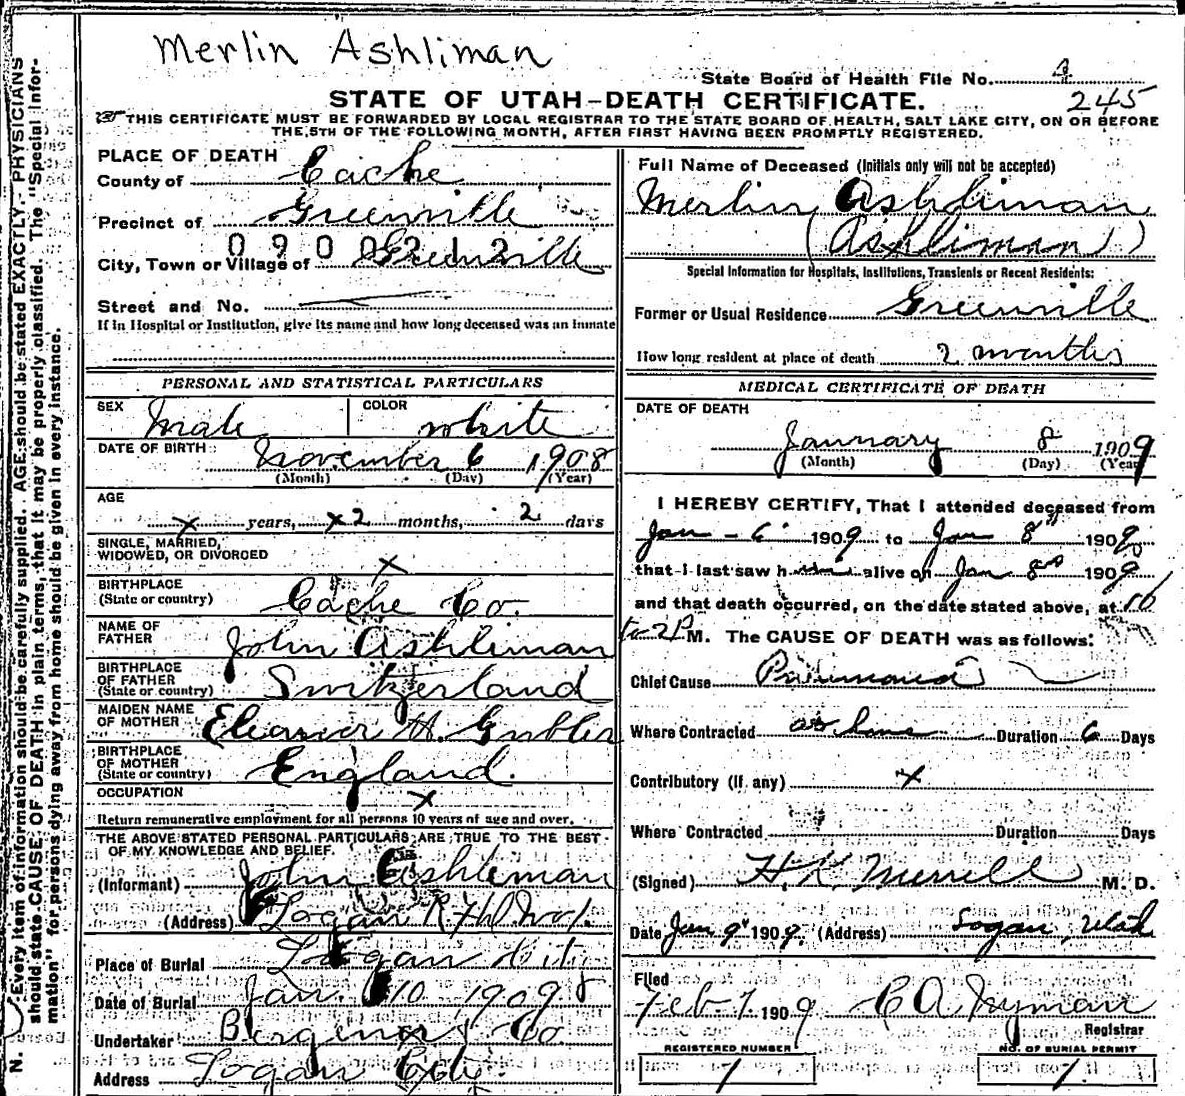 Merlin Ashliman
State Board of Health File No. 4
245
STATE OF UTAH-DEATH CERTIFICATE.
THIS CERTIFICATE MUST BE FORWARDED BY LOCAL REGISTRAR TO THE STATE BOARD OF HEALTH, SALT LAKE CITY, ON OR BEFORE
THE 5TH OF THE FOLLOWING MONTH, AFTER FIRST HAVING BEEN PROMPTLY REGISTERED.
PLACE OF DEATH
County of Cache
Precinct of Greenville
0 9 0 0 2 1 2
City, Town or Village of Greenville
Street and No.
If in Hospital or Institution, give its name and how long deceased was an inmate
Full Name of Deceased (Initials only will not be accepted)
Merlin Ashliman
(Ashliman)
Special Information for Hospitals, Institutions, Transients or Recent Residents:
Former or Usual Residence Greenville
How long resident at place of death 2 months
PERSONAL AND STATISTICAL PARTICULARS
SEX Male COLOR white
DATE OF BIRTH November 6 1908
(Month) (Day) (Year)
AGE
x years, x2 months, 2 days
SINGLE, MARRIED,
WIDOWED, OR DIVORCED x
BIRTHPLACE
(State or country) Cache Co.
NAME OF
FATHER John Ashliman
BIRTHPLACE
OF FATHER
(State or country) Switzerland
MAIDEN NAME
OF MOTHER Eleanor H. Gubler
BIRTHPLACE
OF MOTHER
(State or country) England.
OCCUPATION x
Return remunerative employment for all persons 10 years of age and over.
THE ABOVE STATED PERSONAL PARTICULARS ARE TRUE TO THE BEST
OF MY KNOWLEDGE AND BELIEF.
(Informant) John Ashliman
(Address) Logan R.F.D. No 1.
Place of Burial Logan City
Date of Burial Jan. 10 1909
Undertaker Co
Address Logan City
MEDICAL CERTIFICATE OF DEATH
DATE OF DEATH
January 8 1909
(Month) (Day) (Year)
I HEREBY CERTIFY, That I attended deceased from
Jan - 6 1909 to Jan 8th 1909
that I last saw him alive on Jan 8 1909
and that death occurred, on the date stated above, at 10
to 2 P M. The CAUSE OF DEATH was as follows:
Chief Cause Pneumonia
Where Contracted at home Duration 6 Days
Contributory (if any) x
Where Contracted Duration Days
(Signed) H. K. Merrill M. D.
Date Jan 9 1909. (Address) Logan, Utah
Filed
Feb 1. 1909 Registrar
REGISTERED NUMBER
1
NO. OF BURIAL PERMIT
1
N. Every item of information should be carefully supplied. AGE should be stated EXACTLY. PHYSICIANS
should state CAUSE OF DEATH in plain terms, that it may be properly classified. The "Special Infor-
mation" for persons dying away from home should be given in every instance.